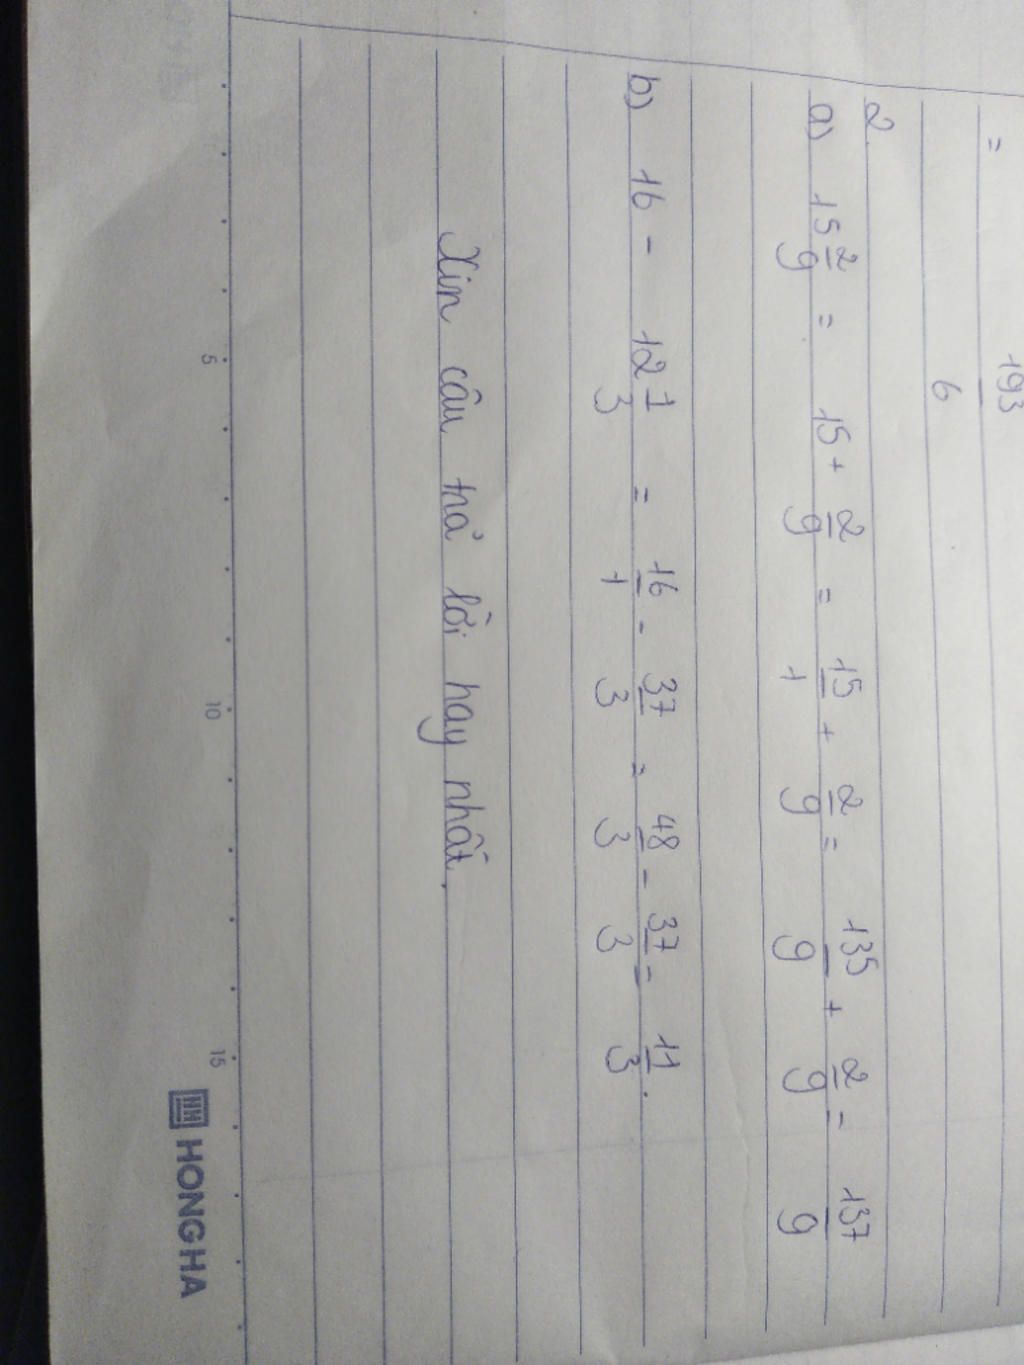 = 193/6
2.
a) 15 2/9 = 15 + 2/9 = 15/1 + 2/9 = 135/9 + 2/9 = 137/9
b) 16 - 12 1/3 = 16/1 - 37/3 = 48/3 - 37/3 = 11/3.
Xin câu trả lời hay nhất.
5 10 15
HONG HA